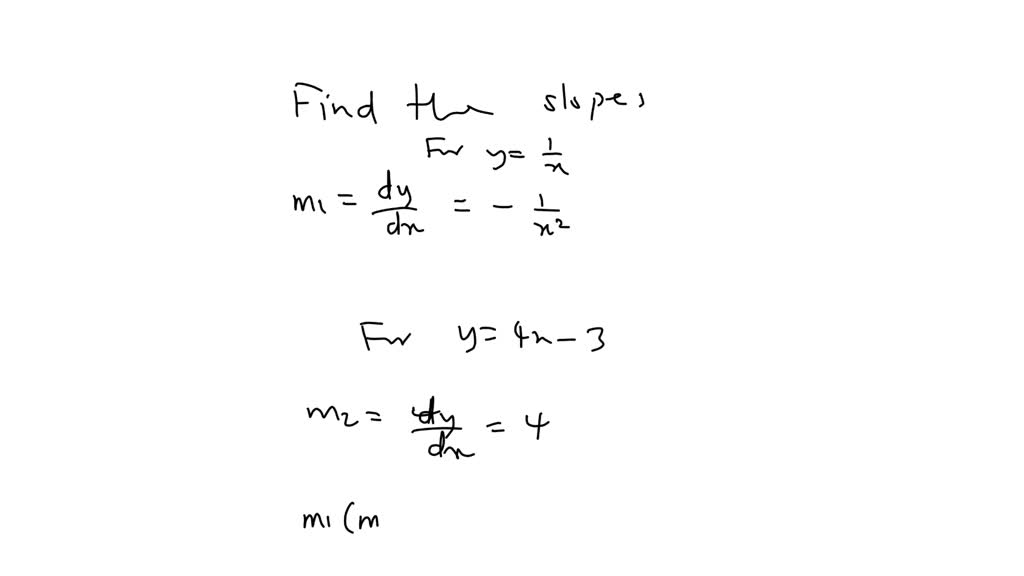 Find the slopes
For y = 1/x
m1 = dy/dx = - 1/x²
For y = 4x - 3
m2 = dy/dx = 4
m1 (m